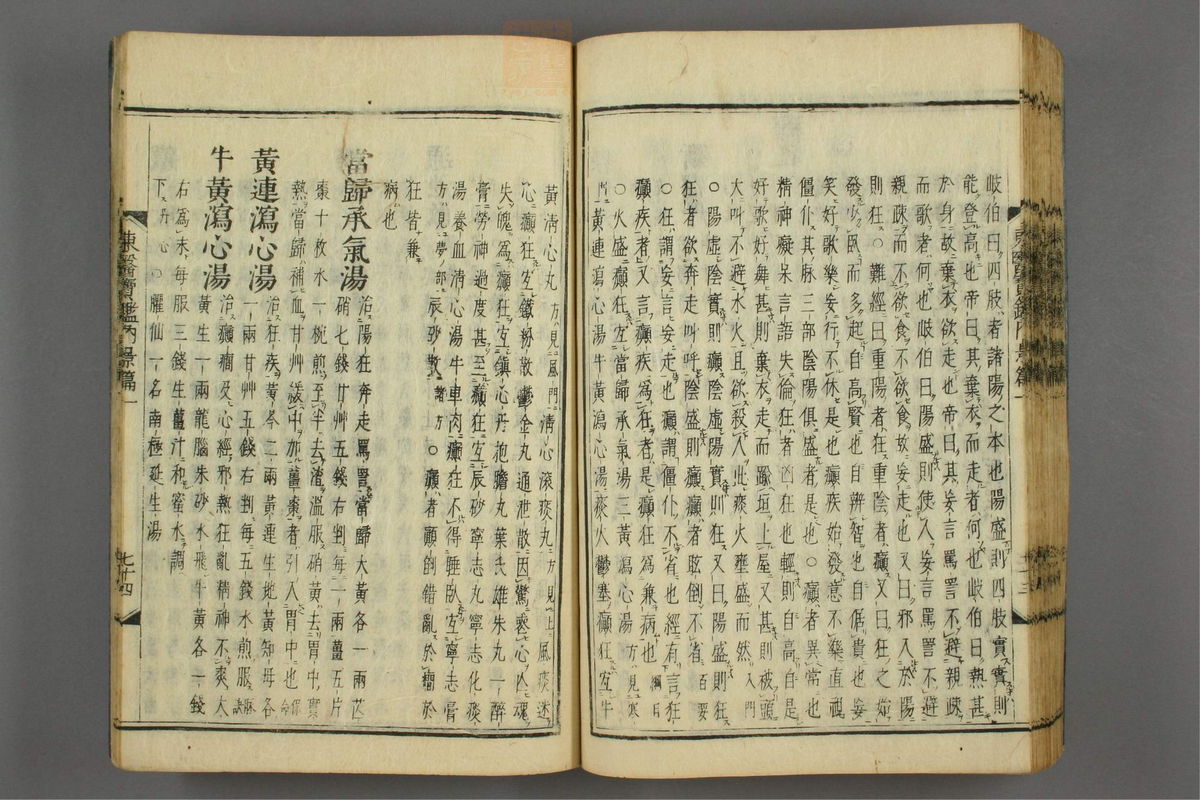 岐伯曰四肢者諸陽之本也陽盛則四肢實實則
能登高也帝曰其棄衣而走者何也岐伯曰熱甚
於身故棄衣欲走也帝曰其妄言罵詈不避親疎
而歌者何也岐伯曰陽盛則使人妄言罵詈不避
親疎而不欲食不欲食故妄走也又曰邪入於陽
則狂○難經曰重陽者狂重陰者癲又曰狂之始
發少臥而多起自高賢也自辨智也自倨貴也妄
笑好歌樂妄行不休是也癲疾始發意不樂直視
僵仆其脉三部陰陽俱盛者是也○癲者異常也
精神癡呆言語失倫狂者凶狂也輕則自高自是
好歌好舞甚則棄衣走而踰垣上屋又甚則被頭
大叫不避水火且欲殺人此痰火壅盛而然入門
○陽虛陰實則癲陰虛陽實則狂又曰陽盛則狂
狂者欲奔走叫呼陰盛則癲癲者眩倒不省百要
○狂謂妄言妄走也癲謂僵仆不省也經有言狂
癲疾者又言癲疾爲狂者是癲狂爲兼病也綱目
○火盛癲狂宜當歸承氣湯三黃瀉心湯方見寒
門黃連瀉心湯牛黃瀉心湯痰火鬱塞癲狂宜牛
黃清心丸方見風門清心滾痰丸方見上風痰迷
心癲狂宜鐵粉散鬱金丸通泄散因驚憂心亡魂
失魄爲癲狂宜鎭心丹抱膽丸葉氏雄朱丸一醉
膏勞神過度甚至癲狂宜辰砂寧志丸寧志化痰
湯養血清心湯牛車肉癲狂不得睡臥宜寧志膏
方見夢部辰砂散諸方○癲者顚倒錯亂於癇於
狂皆兼
病也
當歸承氣湯治陽狂奔走罵詈當歸大黃各一兩芒
硝七錢甘艸五錢右剉每一兩薑五片
棗十枚水一椀煎至半去滓溫服硝黃去胃中實
熱當歸補血甘艸緩中加薑棗者引入胃中也保命
黃連瀉心湯治狂疾黃芩二兩黃連生地黃知母各
一兩甘艸五錢右剉每五錢水煎服
牛黃瀉心湯治癲癎及心經邪熱狂亂精神不爽大
黃生一兩龍腦朱砂水飛牛黃各一錢
右爲末每服三錢生薑汁和蜜水調
下丹心○臞仙一名南極延生湯
東醫寶鑑內景篇一
七十四